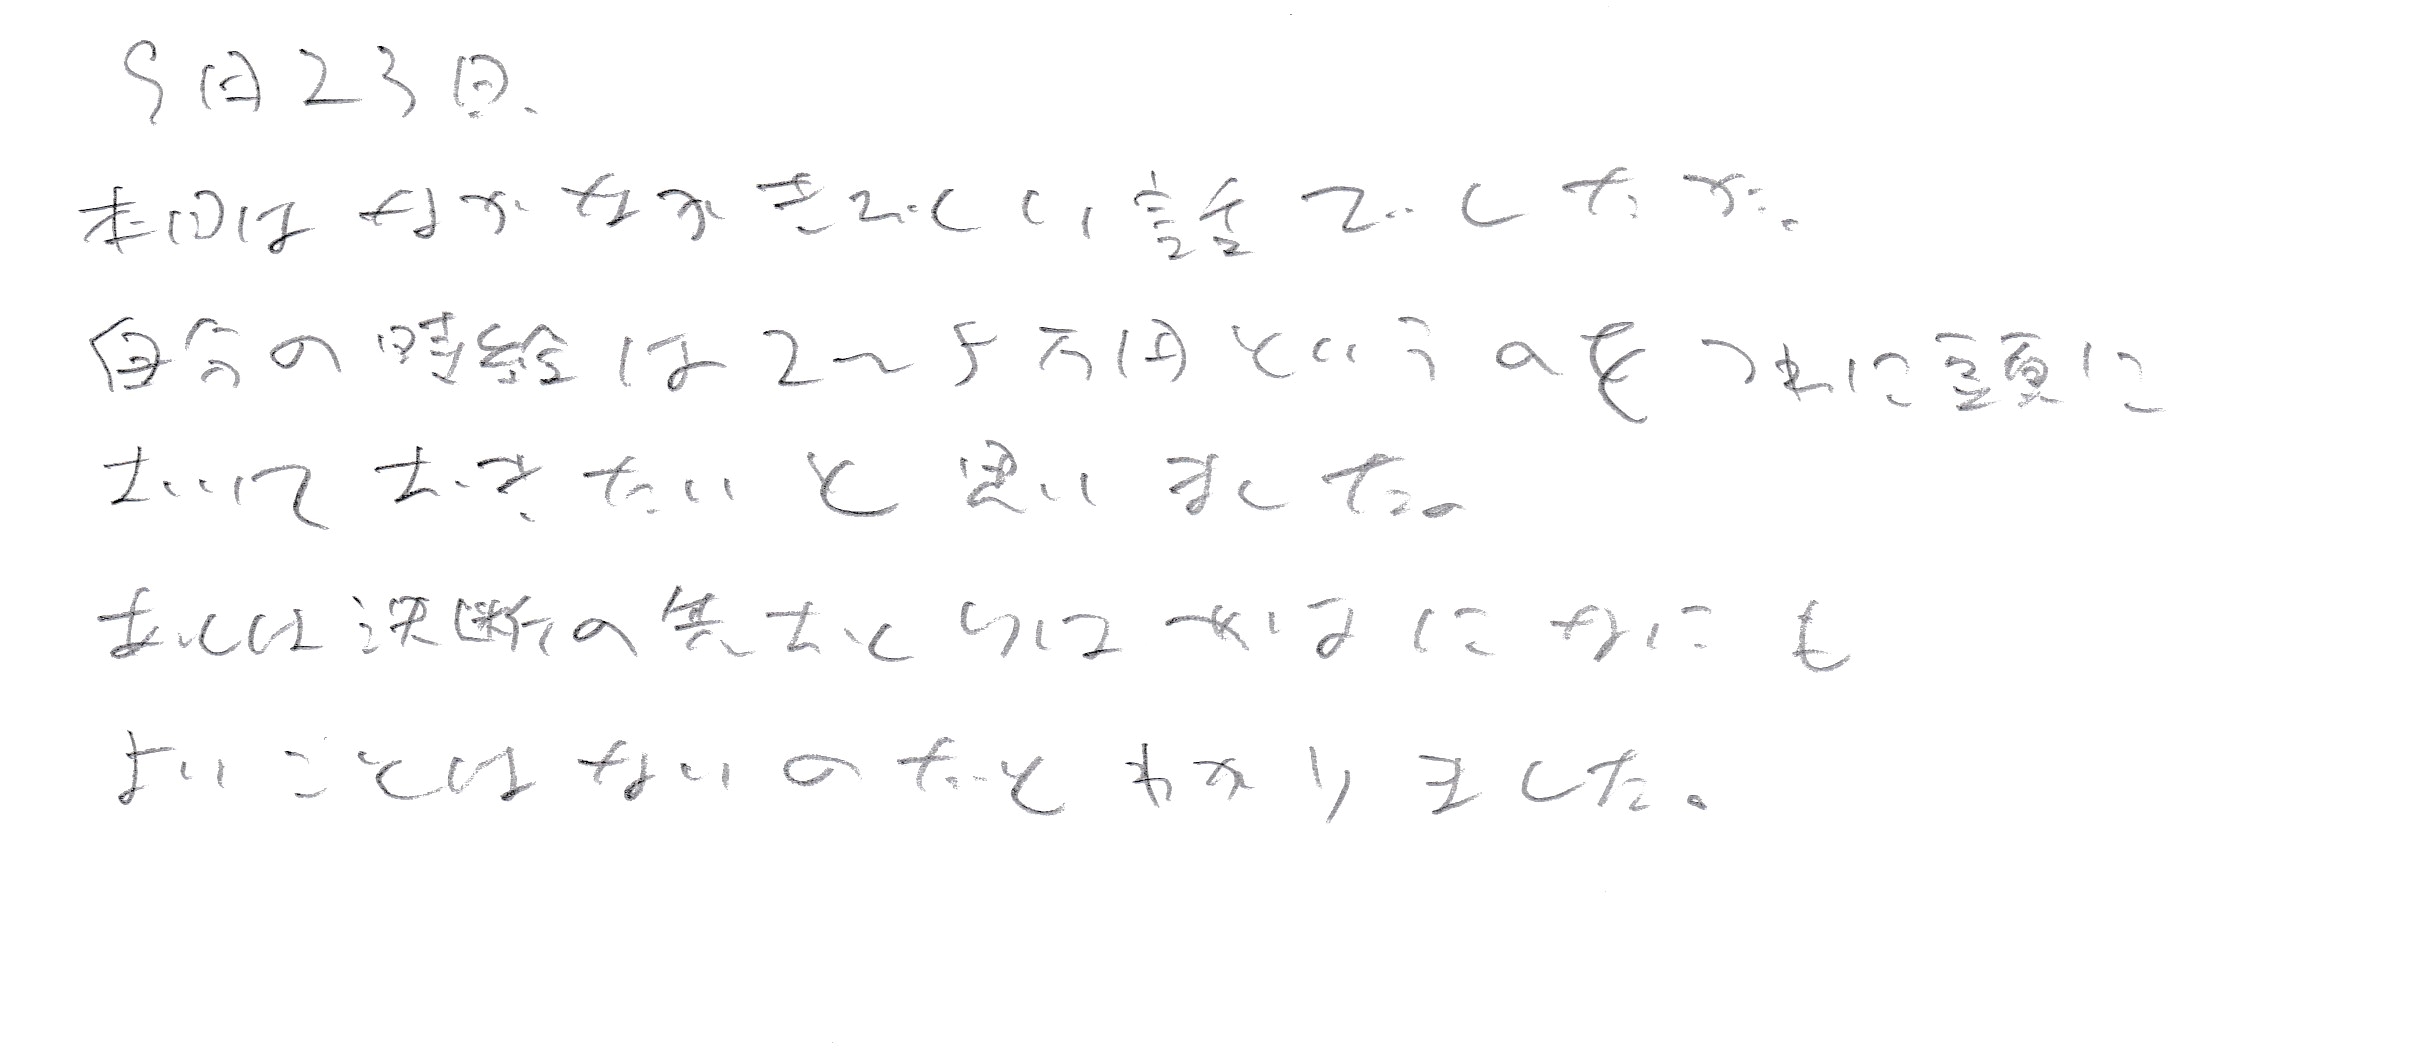 9月23日、
本日はなかなかきびしい話でしたが。
自分の時給は2〜5万円というのをつねに頭に
おいておきたいと思いました。
あとは決断の先おくりはせばになにも
よいことはないのだとわかりました。